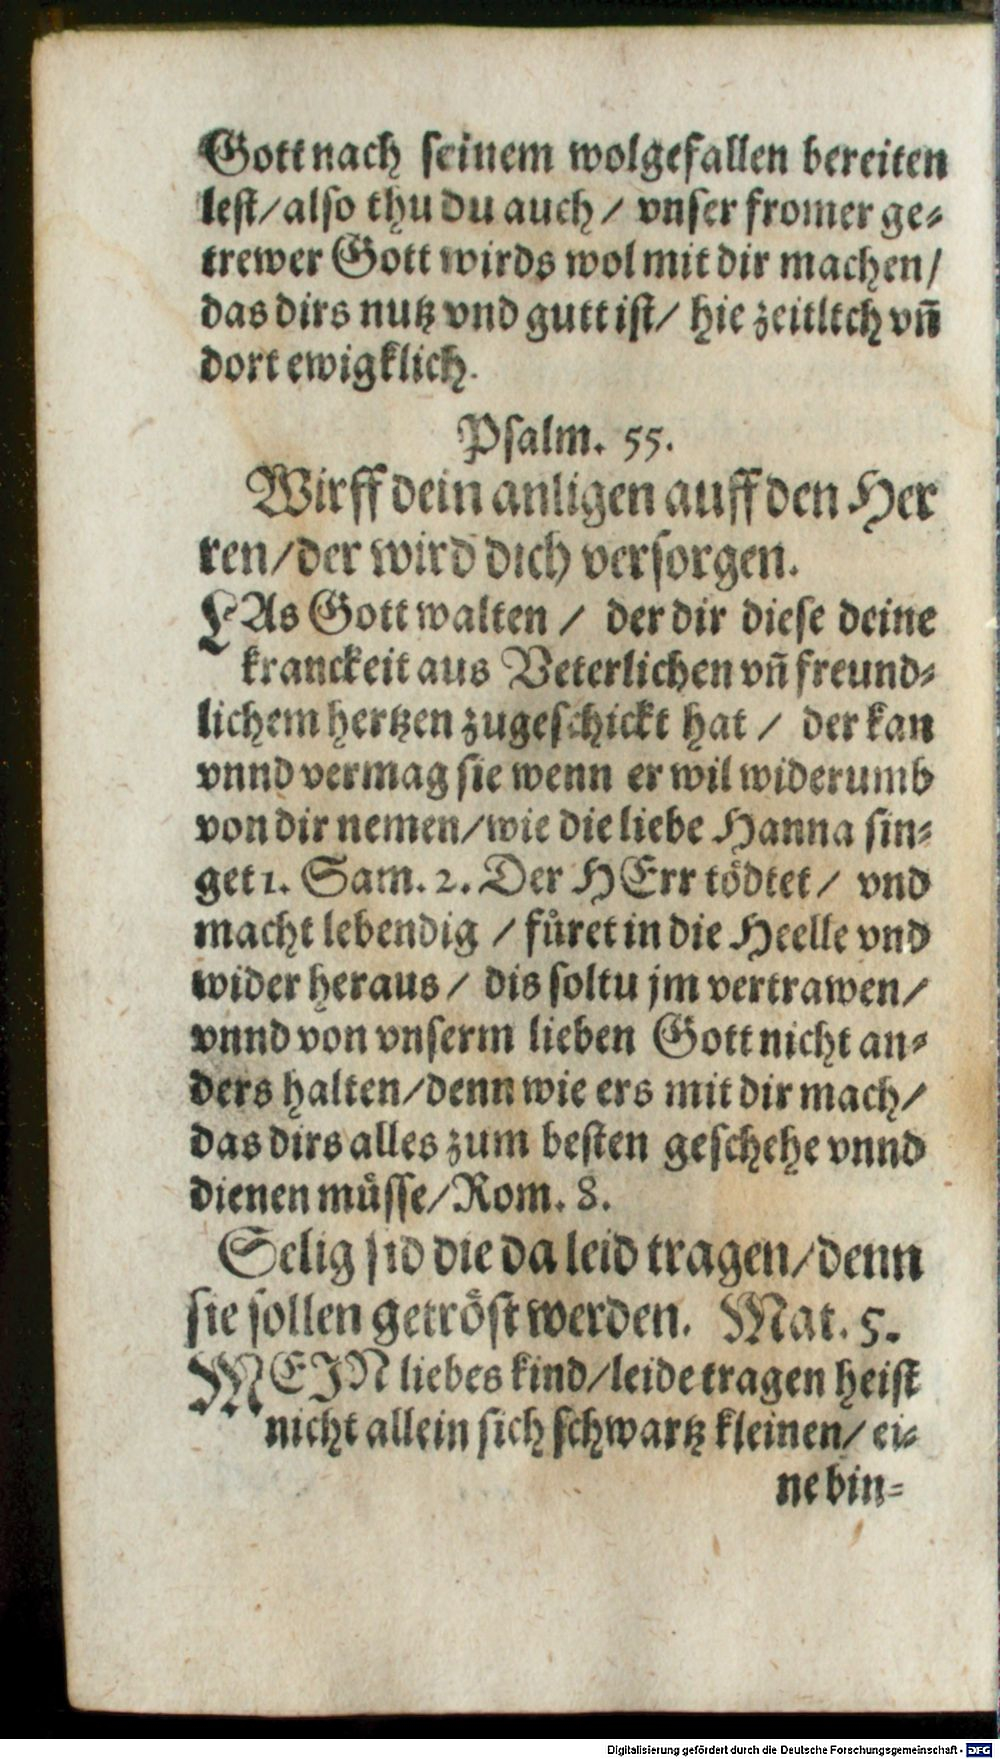 Gott nach seinem wolgefallen bereiten
lest/also thu du auch/ vnser fromer ge-
trewer Gott wirds wol mit dir machen/
das dirs nutz vnd gutt ist/ hie zeitltch vñ
dort ewigklich.
Psalm. 55.
Wirff dein anligen auff den Her
ren/der wird dich versorgen.
LAs Gott walten / der dir diese deine
kranckeit aus Veterlichen vñ freund-
lichem hertzen zugeschickt hat / der kan
vnnd vermag sie wenn er wil widerumb
von dir nemen/wie die liebe Hanna sin-
get 1. Sam. 2. Der HErr tödtet/ vnd
macht lebendig / fůret in die Heelle vnd
wider heraus/ dis soltu jm vertrawen/
vnnd von vnserm lieben Gott nicht an-
ders halten/denn wie ers mit dir mach/
das dirs alles zum besten geschehe vnnd
dienen müsse/Rom. 8.
Selig sid die da leid tragen/denn
sie sollen getröst werden. Mat. 5.
MEIN liebes kind/leide tragen heist
nicht allein sich schwartz kleinen/ ei-
ne bin-
Digitalisierung gefördert durch die Deutsche Forschungsgemeinschaft - DFG